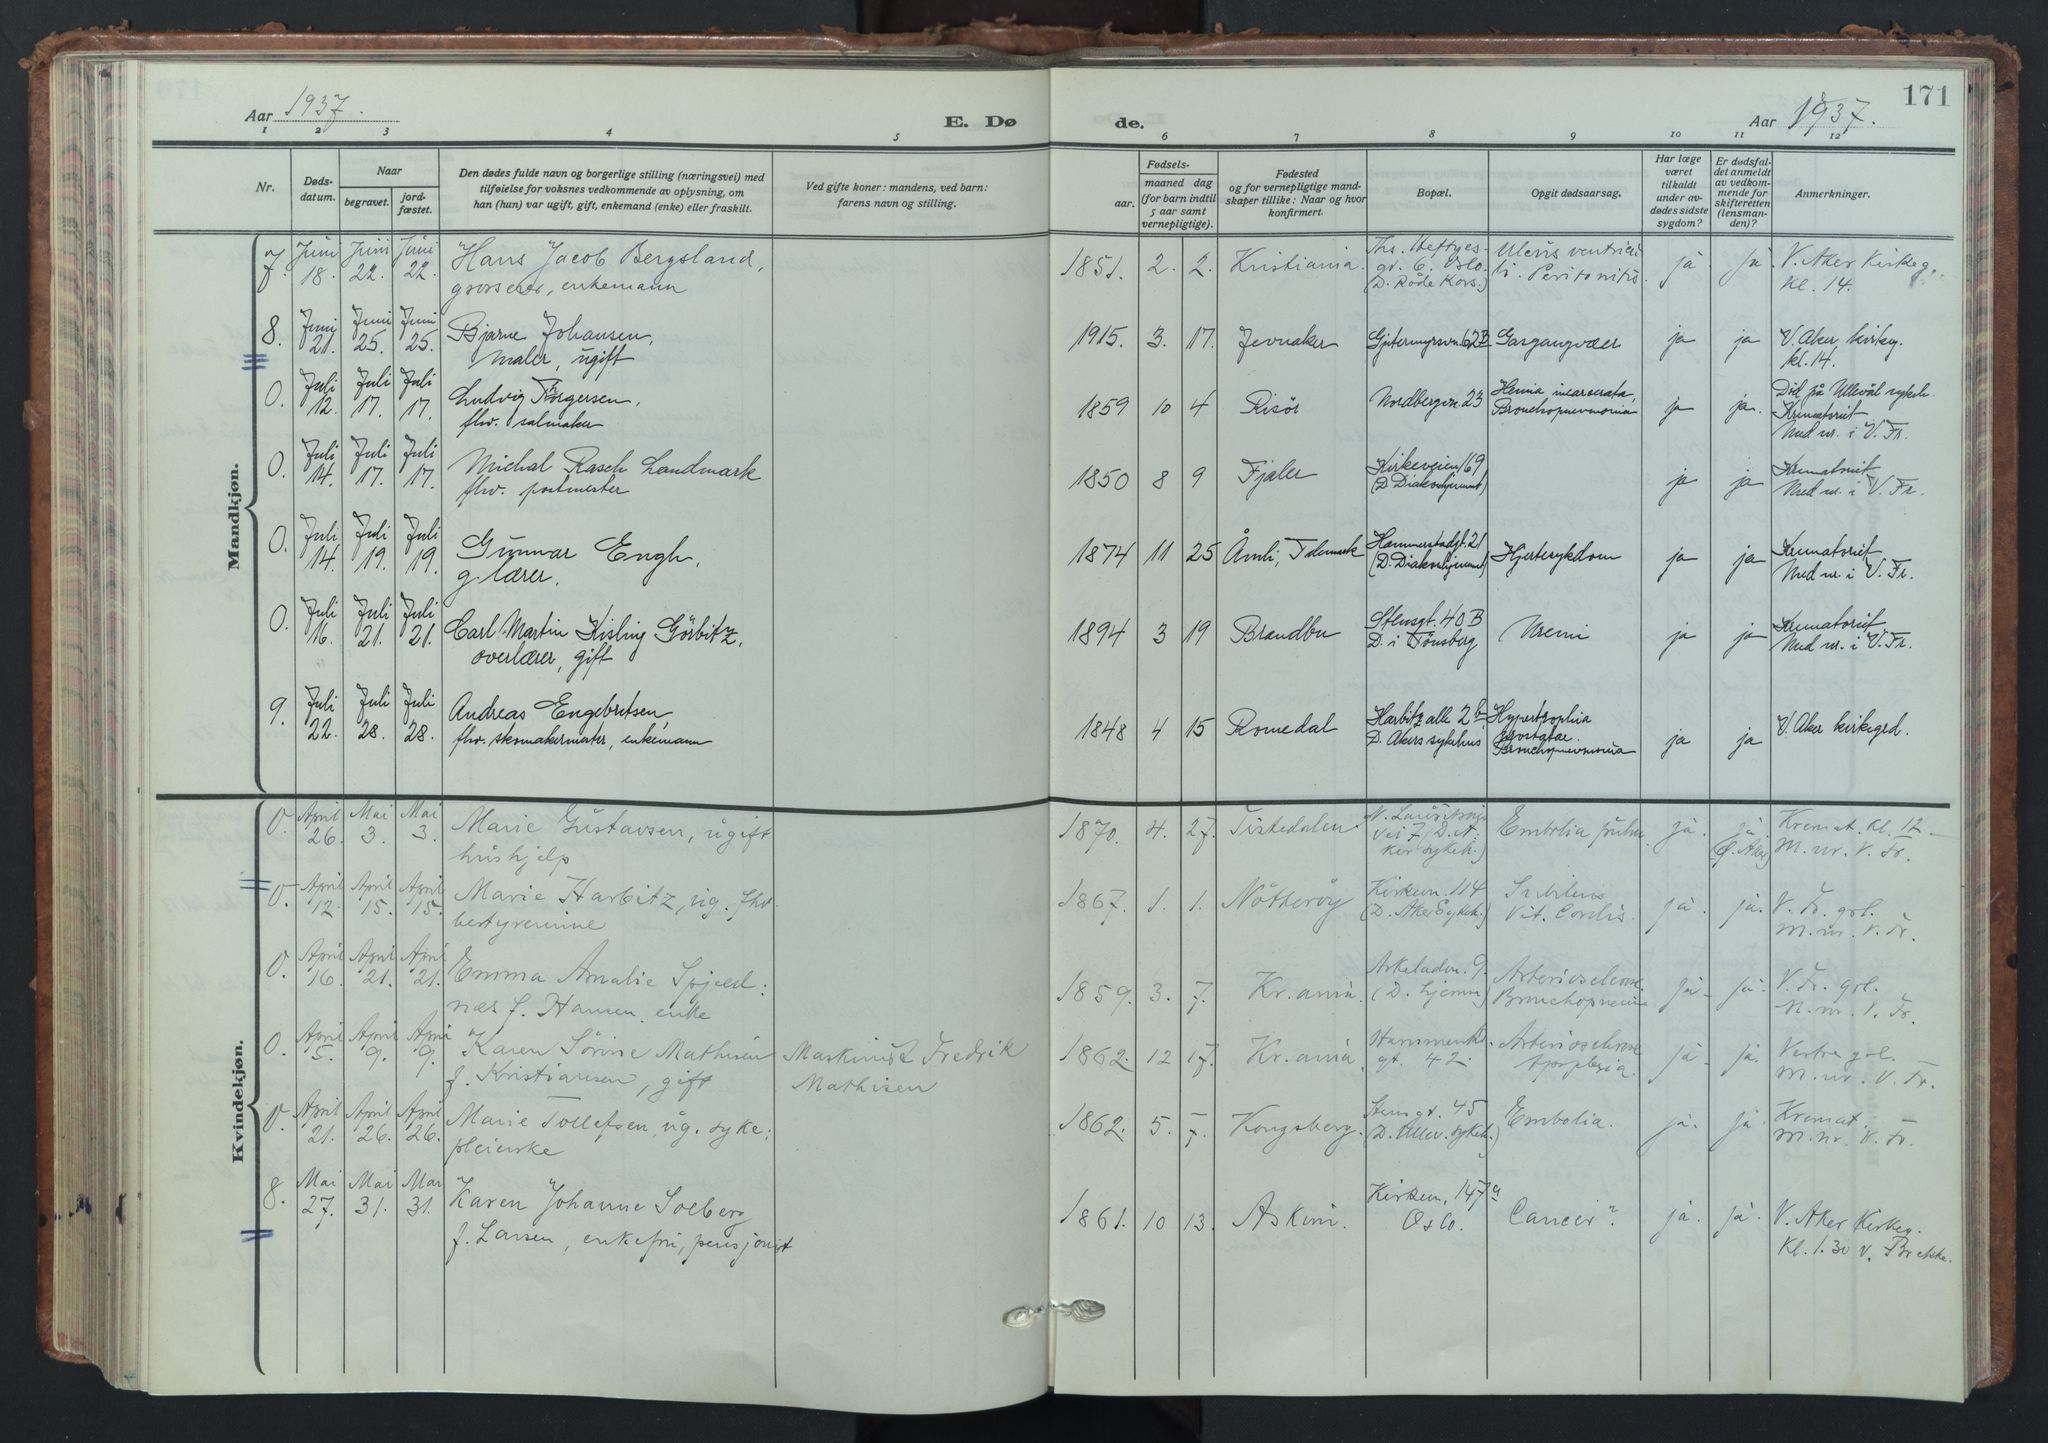 Aar 1937.
E. Dø
de.
Aar 1937.
171
1 2 3 4 5 6 7 8 9 10 11 12
Nr.
Døds-
datum.
Naar
begravet.
jord-
fæstet.
Den dødes fulde navn og borgerlige stilling (næringsvei) med
tilføielse for voksnes vedkommende av oplysning, om
han (hun) var ugift, gift, enkemand (enke) eller fraskilt.
Ved gifte koner: mandens, ved barn:
farens navn og stilling.
Fødsels-
aar. maaned dag
(for barn indtil
5 aar samt
vernepligtige).
Fødested
og for vernepligtige mand-
skaper tillike: Naar og hvor
konfirmert.
Bopæl.
Opgit dødsaarsag.
Har læge
været
tilkaldt
under av-
dødes sidste
sygdom?
Er dødsfal-
det anmeldt
av vedkom-
mende for
skifteretten
(lensman-
den)?
Anmerkninger.
Mandkjøn.
7. Juni 18. Juni 22. Juni 22.
Hans Jacob Bergsland,
grosserer, enkemann
1851. 2. 2. Kristiania.
Ths. Heftyes-
gt. 6. Oslo.
(D. Røde Kors.)
Ulcus ventricu-
li. Peritonitis.
ja ja
V. Aker Kirkeg.
Kl. 14.
8. Juni 21. Juni 25. Juni 25.
Bjarne Johansen,
maler, ugift
1915. 3. 17. Jevnaker
Gjitermyrsvn. 62B
Gasgangvær
ja ja
V. Aker kirkeg.
kl. 14.
0. Juli 12. Juli 17. Juli 17.
Ludvig Torgersen,
fhv. salmaker
1859 10 4 Risör
Nordbergvn. 23
Hernia incarcerata,
Bronchopneumonia
ja ja.
Död på Ullevål sykeh.
Krematoriet
Med nr. i V. Fr.
0. Juli 14. Juli 17. Juli 17.
Michal Rasch Landmark
fhv. postmester
1850 8 9 Fjaler
Kirkeveien 169
(D. Diakonhjemmet)
ja ja
Krematoriet
Med nr. i V. Fr.
0. Juli 14. Juli 19. Juli 19.
Gunnar Engh,
g. lærer,
1874 11 25 Åmli, Telemark
Hammerstadgt. 21
(D. Diakonhjemmet)
Hjertesykdom
ja ja
Krematoriet
Med nr. i V. Fr.
0. Juli 16. Juli 21. Juli 21.
Carl Martin Kisling Görbitz,
overlærer, gift
1894 3 19 Brandbu
Stensgt. 40 B
D. i Tönsberg
Uremi
ja ja
Krematoriet
Med nr. i V. Fr.
9. Juli 22. Juli 28. Juli 28.
Andreas Engebretsen,
fhv. skomakermester, enkemann
1848 4 15 Romedal
Harbitz alle 2b
D. Akers sykehus
Hypertrophia
prostatae.
Bronchopneumonia
ja ja
V. Aker kirkegrd.
Kvindekjøn.
0. April 26. Mai 3. Mai 3.
Marie Gustavsen, ugift
hushjelp
1870. 4. 27. Tistedalen
vei 7, D. A-
ker sykeh.)
Embolia pulm.
ja. ja.
(Ø. Aker)
Kremat. Kl. 12
M. nr. V. Fr.
0. April 12. April 15. April 15.
Marie Harbitz, ug. fhv.
bestyrerinne
1867. 1. 1. Nötteröy
Kirkevn. 114
(D. Aker sykeh.)
Vit. Cordis.
ja. ja.
V. Fr. gol.
M. nr. V. Fr.
0. April 16. April 21. April 21.
Emma Amalie Spjeld-
næs f. Hansen, enke
1859. 3. 7. Kr.ania.
Askeladen. 9.
(D. hjemm)
Arteriosclerose
Bronchopneumoni
ja. ja.
V. Fr. gol.
M. nr. V. Fr.
0. April 5. April 9. April 9.
Karen Sörine Mathisen
f. Kristiansen, gift
Maskinist Fredrik
Mathisen
1862. 12 17. Kr.ania.
gt. 42.
Arteriosclerose
Apoplexia.
ja. ja.
Vestre gol.
M. nr. V. Fr.
0. April 21. April 26. April 26.
Marie Tollefsen, ug. syke-
pleierske
1862. 5. 7. Kongsberg.
Stensgt. 45
(D. Ullev. sykeh.)
Embolia.
ja. ja.
Kremat.
M. nr. V. Fr.
8. Mai 27. Mai 31. Mai 31.
Karen Johanne Solberg
f. Larsen, enkefru, pensjonist
1861. 10 13. Askim.
Kirkevn. 147a
Oslo.
Cancer.
ja. ja.
V. Aker Kirkeg.
Kl. 1.30 v. Brekke.